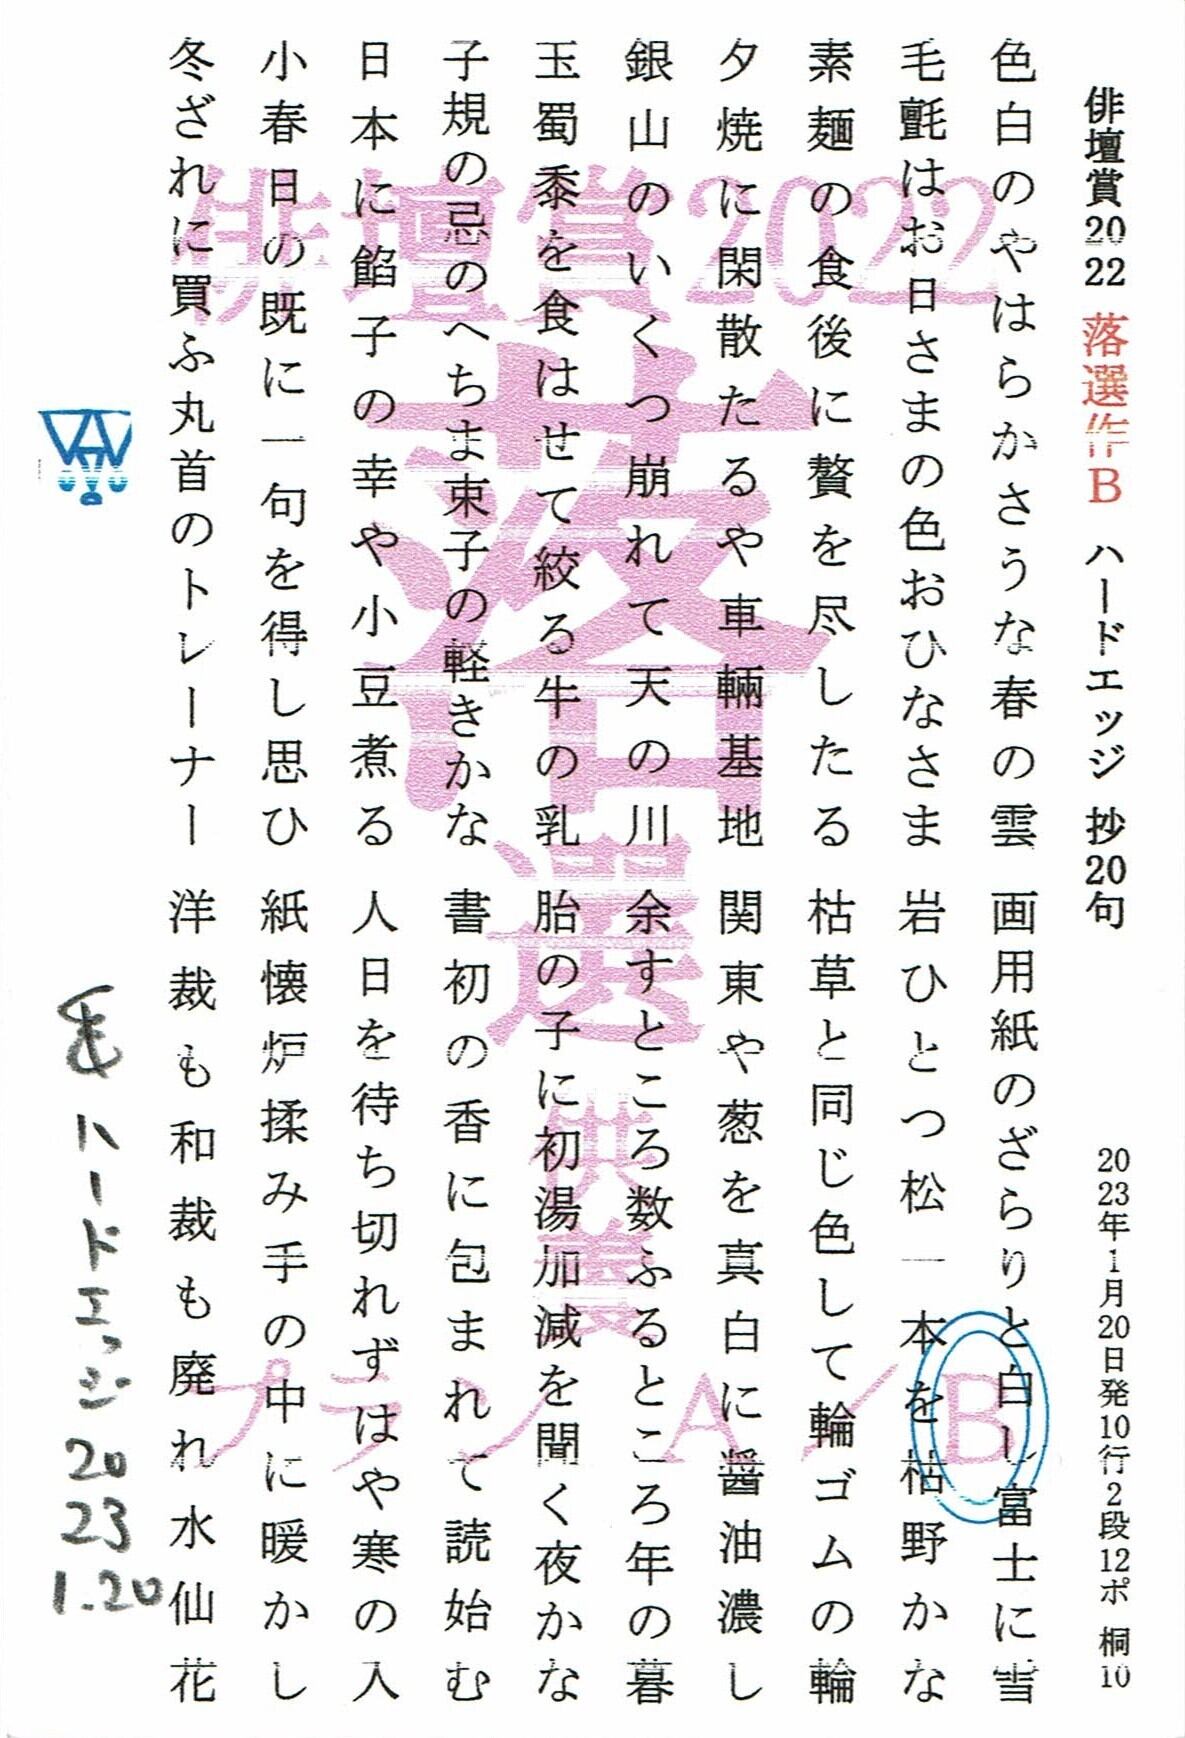 俳壇賞2022 落選作B ハードエッジ 抄20句
2023年1月20日発10行2段12ポ 桐10
色白のやはらかさうな春の雲
毛氈はお日さまの色おひなさま
素麺の食後に贅を尽したる
夕焼に閑散たるや車輛基地
銀山のいくつ崩れて天の川
玉蜀黍を食はせて絞る牛の乳
子規の忌のへちま束子の軽きかな
日本に餡子の幸や小豆煮る
小春日の既に一句を得し思ひ
冬ざれに買ふ丸首のトレーナー
画用紙のざらりと白し富士に雪
岩ひとつ松一本を枯野かな
枯草と同じ色して輪ゴムの輪
関東や葱を真白に醤油濃し
余すところ数ふるところ年の暮
胎の子に初湯加減を聞く夜かな
書初の香に包まれて読始む
人日を待ち切れずはや寒の入
紙懐炉揉み手の中に暖かし
洋裁も和裁も廃れ水仙花
俳壇賞2022
落選
供養
プランA/B
ハードエッジ 2023 1.20